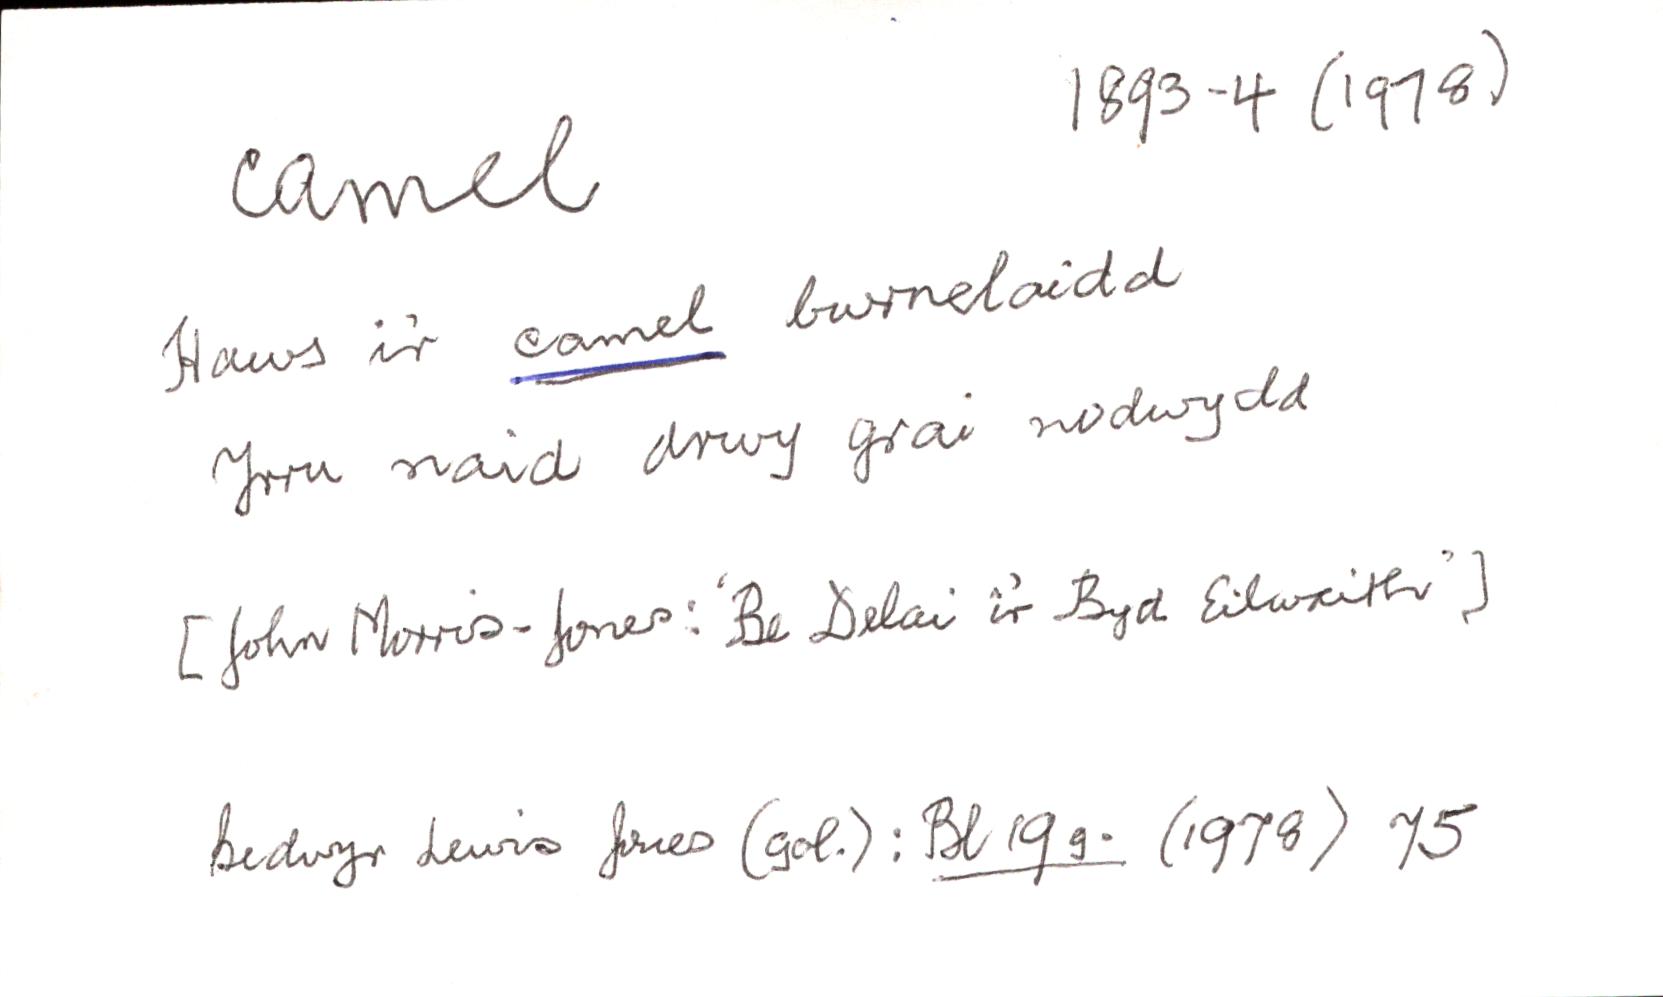 1893-4 (1978)
camel
Haws i'r camel bwrnelaidd
Yrru naid drwy grai nodwydd
[John Morris-Jones: 'Be Delai i'r Byd Eilwaith']
Bedwyr Lewis Jones (gol.): Bl 19g. (1978) 75